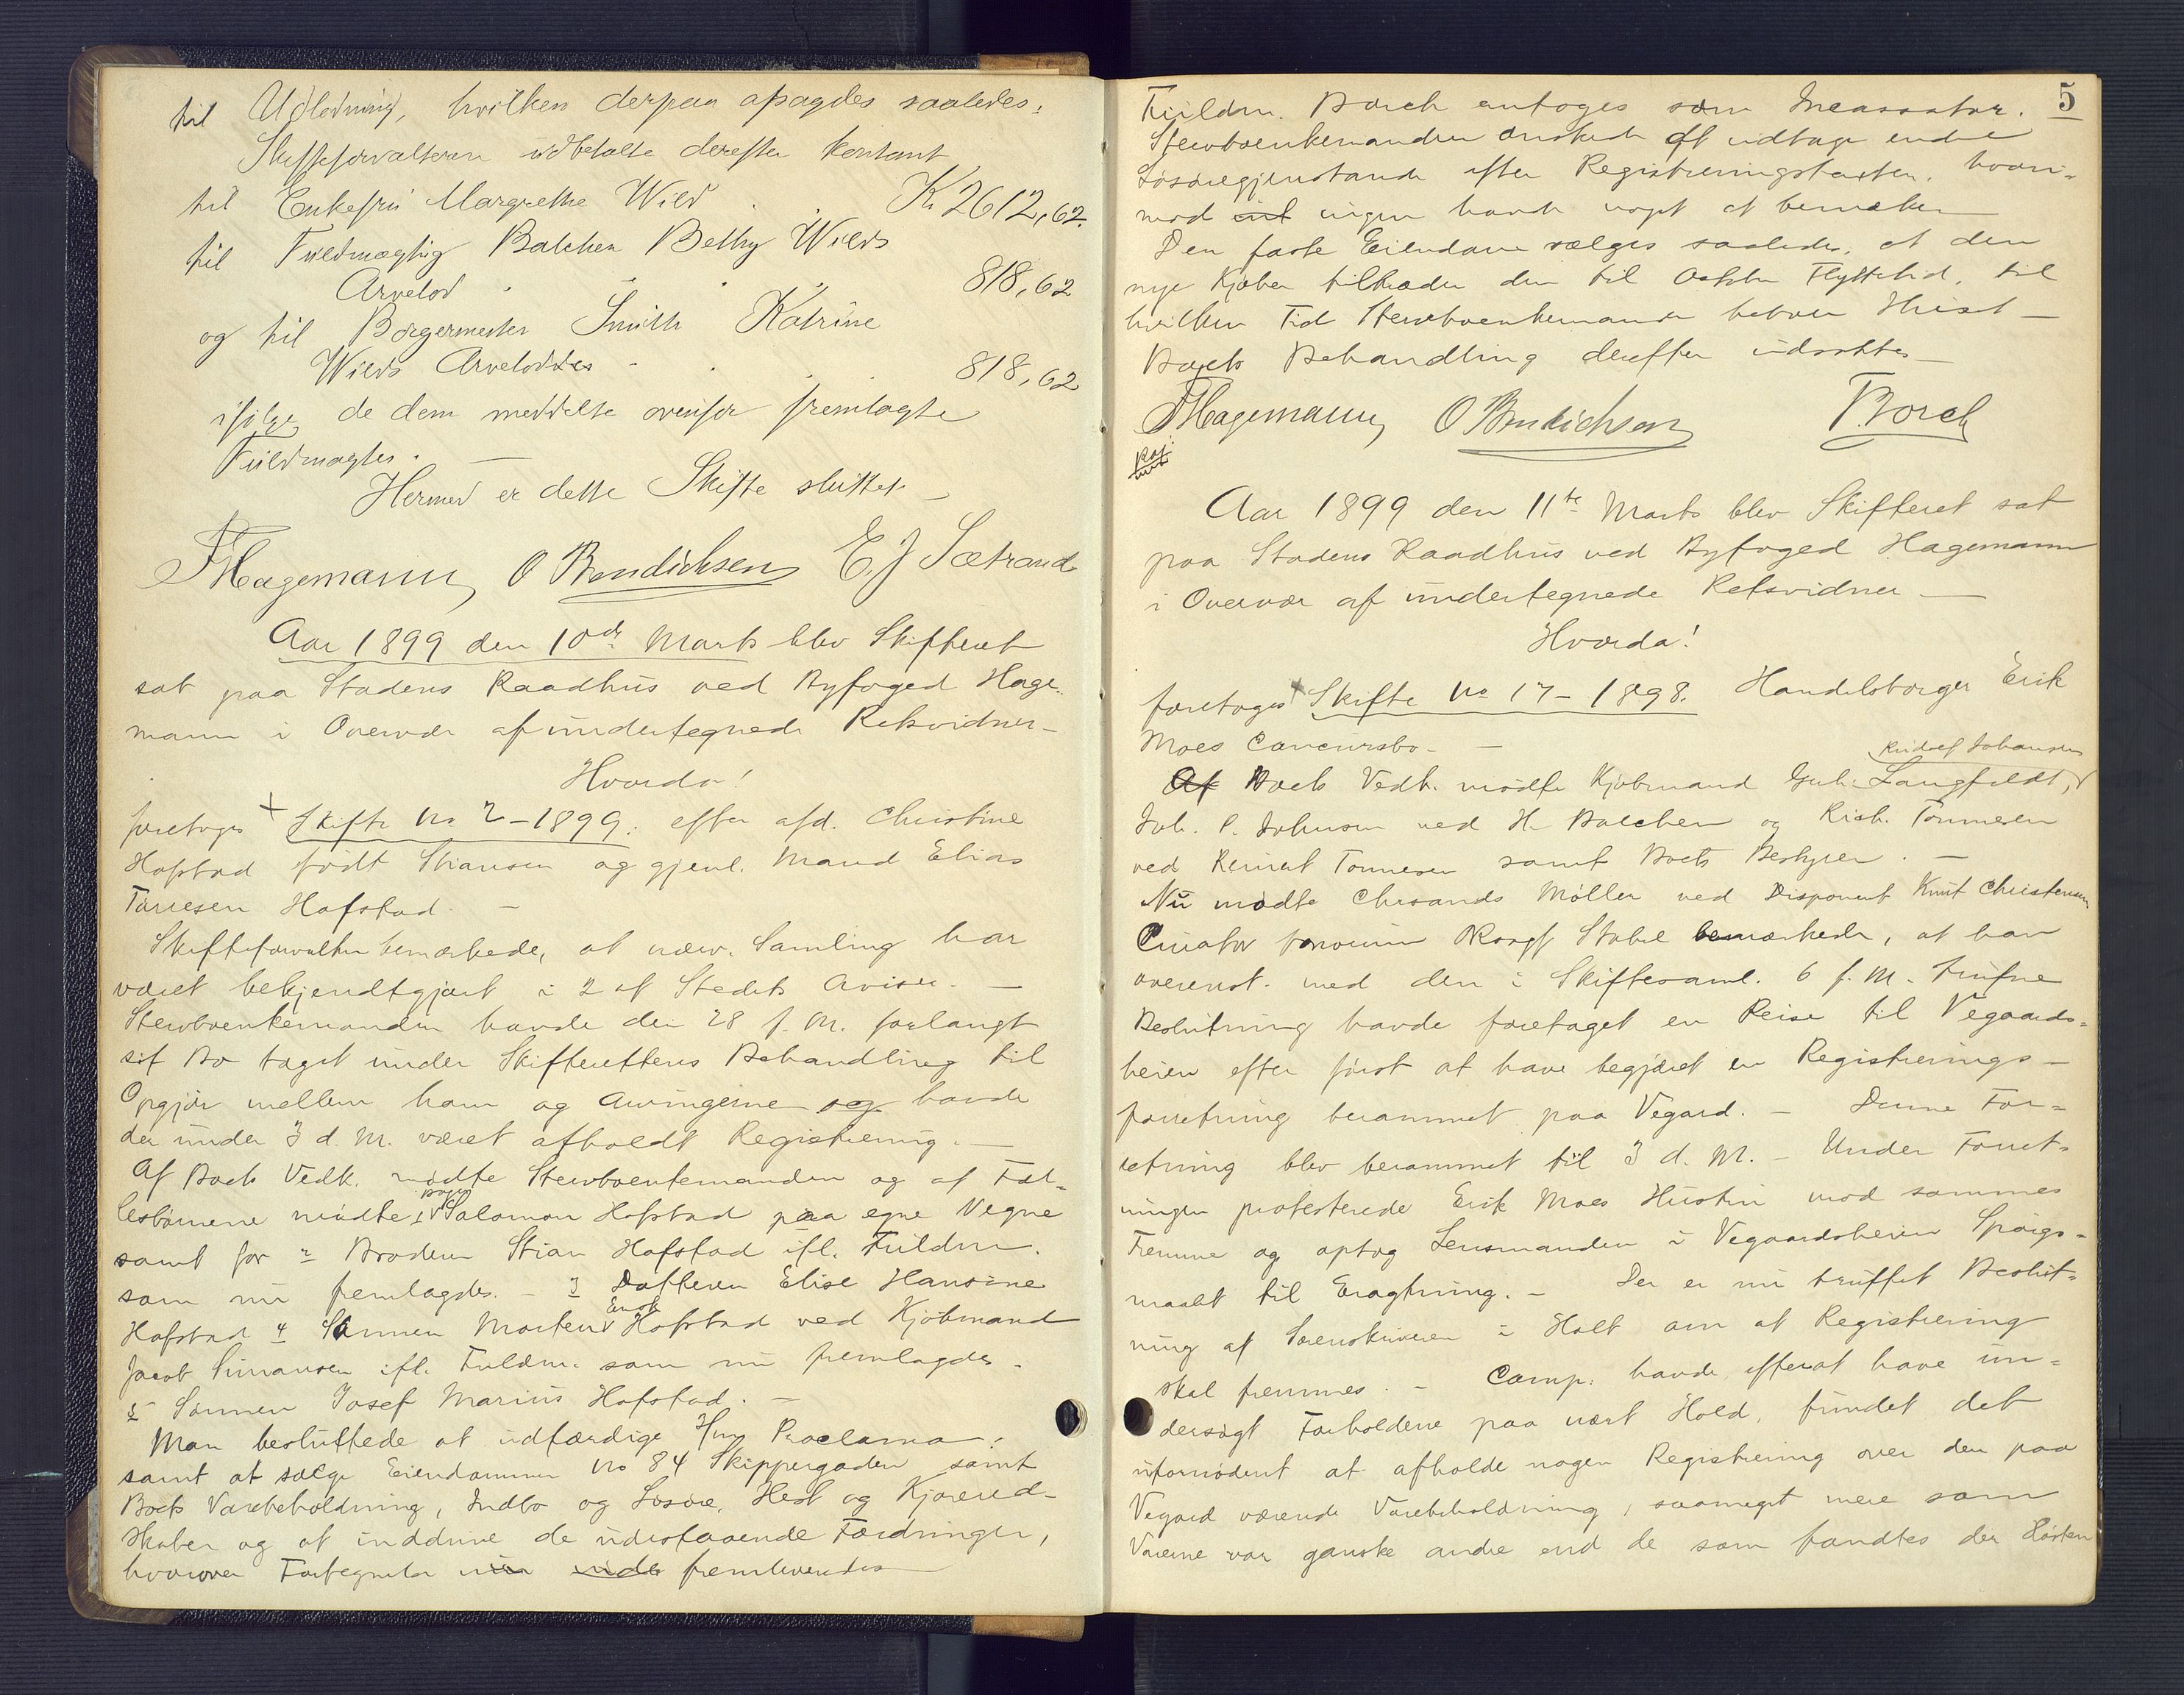 til Udlodning, hvilken derpaa afsagdes saaledes:
Skifteforvalteren udbetalte derefter kontant
til Enkefru Margrethe Wild . . K 2612,62.
til Fuldmægtig Balchen Bethy Wilds
Arvelod . . . 818,62
og til Borgermester Smith Katrine
Wilds Arvelod . . . 818,62
ifølge de dem meddelte ovenfor fremlagte
Fuldmagter. —
Hermed er dette Skifte sluttet —
FHagemann O Bendichsen E. J Sætrand
Aar 1899 den 10de Marts blev Skifteret
sat paa Stadens Raadhus ved Byfoged Hage-
mann i Overvær af undertegnede Retsvidner—
Hvorda!
foretoges Skifte No 2–1899: efter afd. Christine
Hofstad født Stiansen og gjenl. Mand Elias
Hofstad. —
Skifteforvalteren bemærkede, at nærv. Samling har
været bekjendtgjort i 2 af Stedets Aviser. —
Stervboenkemanden havde den 28 f. M. forlangt
sit Bo taget under Skifterettens Behandling til
Opgjør mellem ham og Arvingerne og havde
der under 3 d. M. været afholdt Registrering. —
Af Boets Vedk. mødte Stervboenkemanden og af Fæl-
lesbørnene mødte 1 Salomon Hofstad paa egne Vegne
samt for 2 Broderen Stian Hofstad ifl. Fuldm.
som nu fremlagdes. – 3 Datteren Elise Hansine
Hofstad 4 Sønnen Morten Enok Hofstad ved Kjøbmand
Jacob Simonsen ifl. Fuldm. som nu fremlagdes.
5 Sønnen Josef Marius Hofstad. —
Man besluttede at udfærdige Proclama
samt at sælge Eiendommen No 84 Skippergaden samt
Boets Varebeholdning, Indbo og Løsøre, Hest og Kjørered-
skaber og at inddrive de udestaaende Fordringer,
hvorover Fortegnelse fremleveredes
5
Fuldm. Borch antoges som Incassator.
Stervboenkemanden ønskede at udtage endel
Løsøregjenstande efter Registreringstaxten, hvori-
mod ingen havde noget at bemærke
Den faste Eiendom sælges saaledes, at den
nye Kjøber tiltræder den til Flyttetid, til
hvilken Tid Stervboenkemanden beboer Huset —
Boets Behandling derefter udsattes —
FHagemann O Bendichsen T. Borch
Aar 1899 den 11te Marts blev Skifteret sat
paa Stadens Raadhus ved Byfoged Hagemann
i Overvær af undertegnede Retsvidner —
Hvorda!
foretoges Skifte No 17–1898. Handelsborger Erik
Moes Concursbo. —
Af Boets Vedk. mødte Kjøbmand Langfeldt, Rudolf Johansen
Joh. P. Johnsen ved H. Balchen og Rich. Tønnesen
ved Tønnesen samt Boets Bestyrer. —
Nu mødte Chrsands Møller ved Disponent Knut Christensen
Curator bonorum Stabel bemærkede, at han
overenst. med den i Skiftesaml. 6 f. M. trufne
Beslutning havde foretaget en Reise til Vegaards-
heien efter først at have begjæret en Registrerings-
forretning berammet paa Vegard. — Denne For-
retning blev berammet til 3 d. M. – Under Forret-
ningen protesterede Erik Moes Hustru mod sammes
Fremme og optog Lensmanden i Vegaardsheien Spørgs-
maalet til Eragtning. – Der er nu truffet Beslut-
ning af Sorenskriveren i Holt om at Registrering
skal fremmes. – Comp. havde efterat have un-
dersøgt Forholdene paa nært Hold, fundet det
ufornødent at afholde nogen Registrering over den paa
Vegard værende Varebeholdning, saameget mere som
Varerne var ganske andre end de som fandtes der Høsten